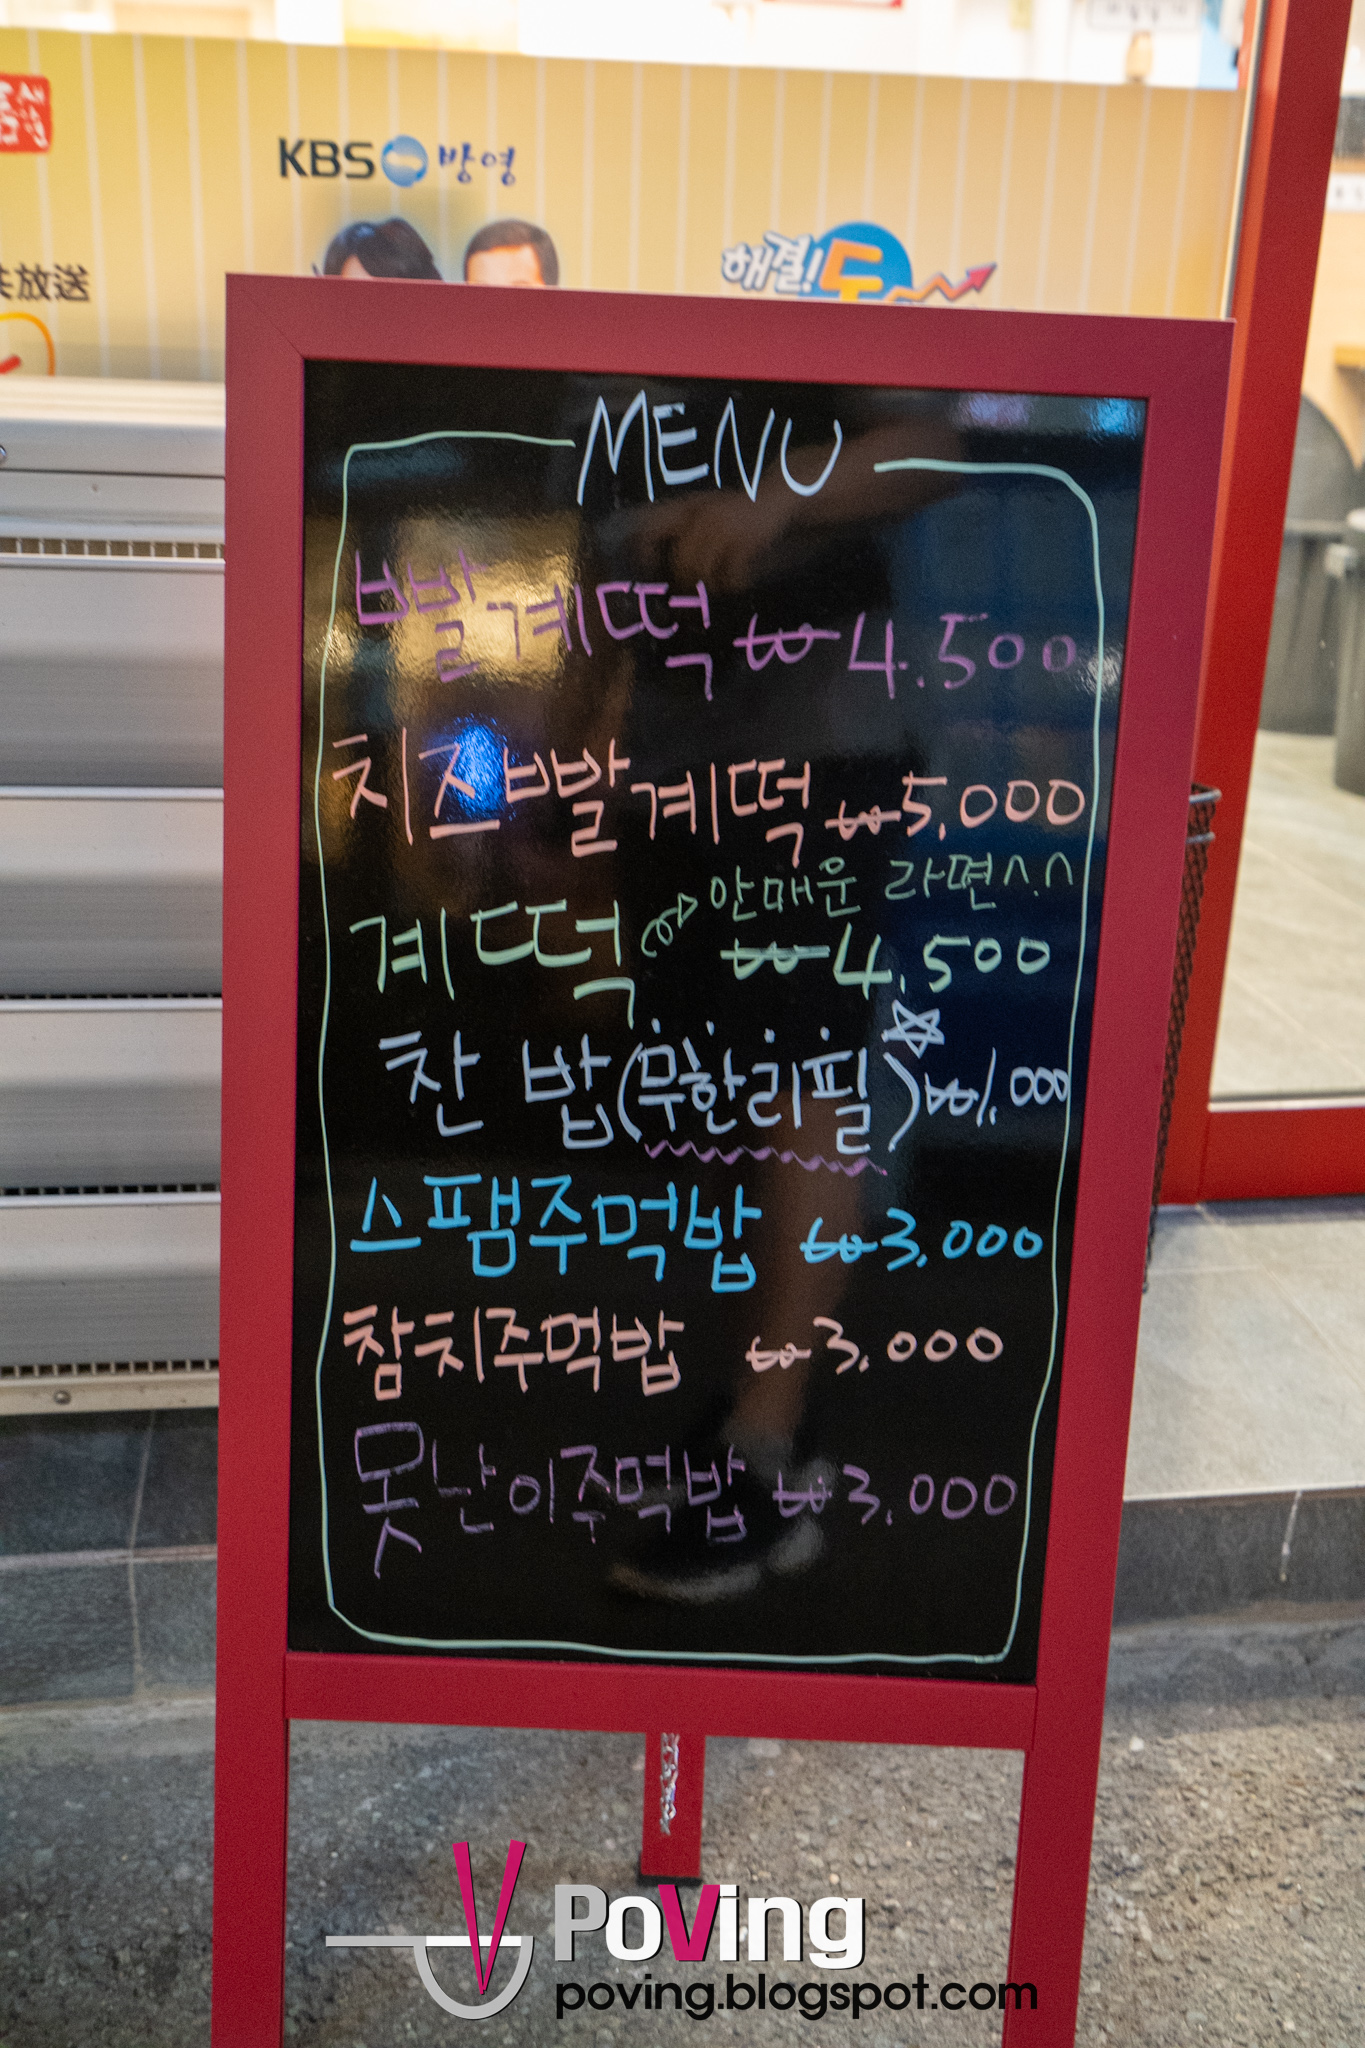 KBS 방영
해결! 돈
放送
MENU
빨계떡 ₩4.500
치즈빨계떡 ₩5,000
안매운 라면^.^
계떡 ₩4.500
찬밥(무한리필)☆₩1.000
스팸주먹밥 ₩3,000
참치주먹밥 ₩3,000
못난이주먹밥 ₩3,000
PoVing
poving.blogspot.com